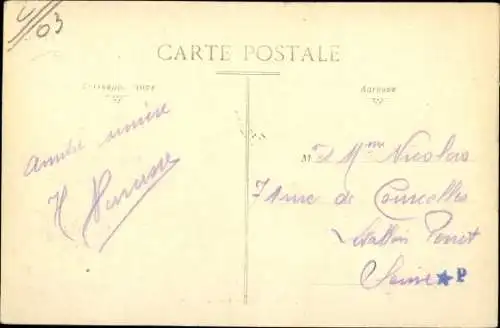 4/03
CARTE POSTALE
Correspondance
Adresse
Amitié sincère
H
M. et Mme Nicolas
71 rue de Courcelles
Levallois Perret
Seine ★ P